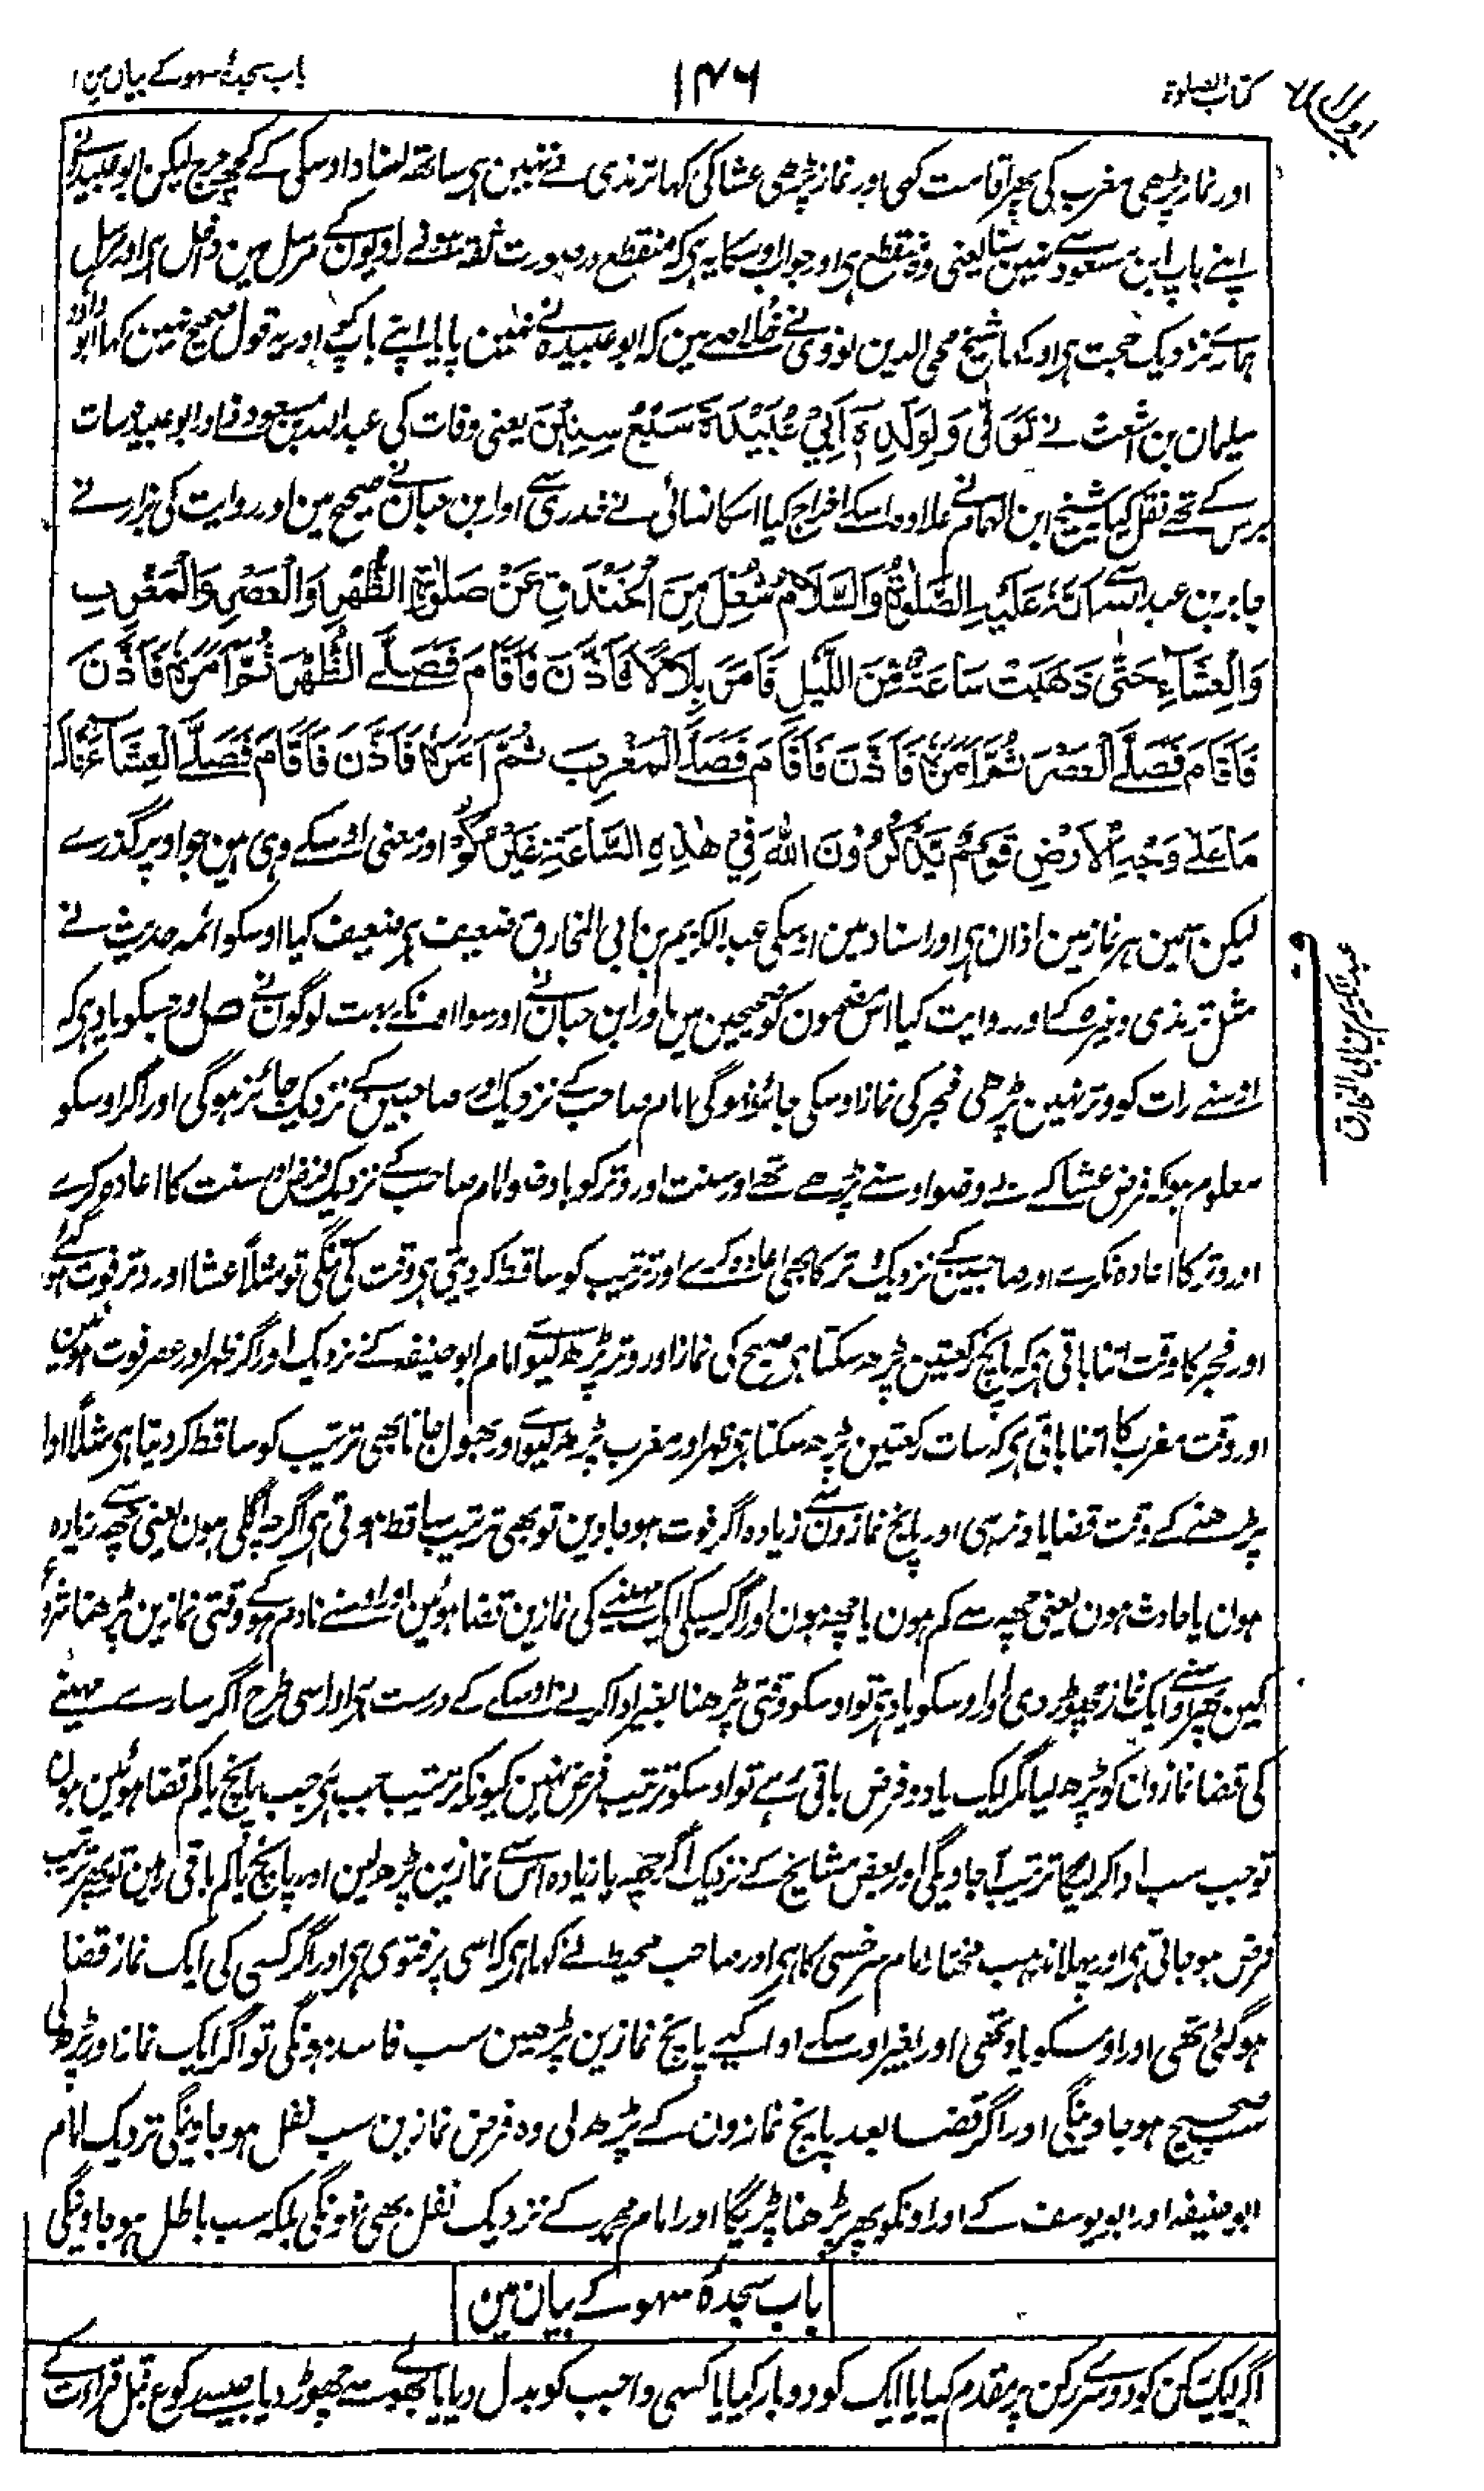 جلد اول
کتاب الصلوة
۱۴۶
باب سجدۂ سہو کے بیان مین
اور نماز پڑھی مغرب کی پھر اقامت کہی اور نماز پڑھی عشا کی کہا ترمذی نے نہین ہی ساتھ اسناد اوسکی کے کچھ حرج لیکن ابو عبیدہ نے
اپنے باپ ابن مسعود سے نہین سنا یعنی وہ منقطع ہی اور جواب اوسکا یہ ہی کہ منقطع در صورت ثقہ ہونے راویون کے مرسل مین داخل ہی اور مرسل
ہمارے نزدیک حجت ہی اور کہا شیخ محی الدین نووی نے خلاصے مین کہ ابو عبیدہ نے نہین پایا اپنے باپ کو اور یہ قول صحیح نہین کہا ابو داؤد
سلیمان بن اشعث نے تُوُفِّیَ وَلِوَلَدِهٖ اَبِیْ عُبَیْدَةَ سَبْعُ سِنِیْنَ یعنی وفات کی عبد اللہ بن مسعود نے اور ابو عبیدہ سات
برس کے تھے نقل کیا شیخ ابن الہمام نے علاوہ اسکے اخراج کیا اسکا نسائی نے خدری سے اور ابن حبان نے صحیح مین اور روایت کی بزار نے
جابر بن عبد اللہ سے اَنَّهٗ عَلَیْهِ الصَّلٰوةُ وَالسَّلَامُ شُغِلَ مِنَ الْخَنْدَقِ عَنْ صَلٰوةِ الظُّهْرِ وَالْعَصْرِ وَالْمَغْرِبِ
وَالْعِشَآءِ حَتّٰی ذَهَبَتْ سَاعَةٌ مِّنَ اللَّیْلِ فَاَمَرَ بِلَالًا فَاَذَّنَ فَاَقَامَ فَصَلَّے الظُّهْرَ ثُمَّ اَمَرَهٗ فَاَذَّنَ
فَاَقَامَ فَصَلَّے الْعَصْرَ ثُمَّ اَمَرَهٗ فَاَذَّنَ فَاَقَامَ فَصَلَّے الْمَغْرِبَ ثُمَّ اَمَرَهٗ فَاَذَّنَ فَاَقَامَ فَصَلَّے الْعِشَآءَ ثُمَّ قَالَ
مَا عَلٰے وَجْهِ الْاَرْضِ قَوْمٌ یَّذْکُرُوْنَ اللهَ فِیْ هٰذِهِ السَّاعَةِ غَیْرُکُمْ اور معنی اوسکے وہی ہین جو اوپر گذرے
لیکن اسمین ہر نماز مین اذان ہی اور اسناد مین اوسکی عبد الکریم بن ابی المخارق ضعیف ہی ضعیف کیا اوسکو ائمہ حدیث نے
مثل ترمذی وغیرہ کے اور روایت کیا اس مضمون کو صحیحین مین اور ابن حبان نے اور سوا اونکے بہت لوگون نے صل اور جسکو یاد ہی کہ
اوسنے رات کو وتر نہین پڑھی فجر کی نماز اوسکی جائز نہوگی امام صاحب کے نزدیک اور صاحبین کے نزدیک جائز ہوگی اور اگر اوسکو
معلوم ہو کہ فرض عشا کے بے وضو اوسنے پڑھے تھے اور سنت اور وتر کو با وضو امام صاحب کے نزدیک فرض اور سنت کا اعادہ کرے
اور وتر کا اعادہ نکرے اور صاحبین کے نزدیک وتر کا بھی اعادہ کرے اور ترتیب کو ساقط کر دیتی ہی وقت کی تنگی تو مثلاً عشا اور وتر فوت ہو گئے
اور فجر کا وقت اتنا باقی ہی کہ پانچ رکعتین پڑھ سکتا ہی صبح کی نماز اور وتر پڑھ لیوے امام ابو حنیفہ کے نزدیک اور اگر ظہر اور عصر فوت ہوئین
اور وقت مغرب کا اتنا باقی ہی کہ سات رکعتین پڑھ سکتا ہی ظہر اور مغرب پڑھ لیوے اور بھول جانا بھی ترتیب کو ساقط کر دیتا ہی مثلاً ادا
پڑھنے کے وقت قضا یاد نرہی اور پانچ نمازون سے زیادہ اگر فوت ہو جاوین تو بھی ترتیب ساقط ہوتی ہی اگرچہ اگلی ہون یعنی چھ سے زیادہ
ہون یا حادث ہون یعنی چھ سے کم ہون یا چھ ہون اور اگر کسیکی ایک مہینے کی نمازین قضا ہوئین اور اوسنے نادم ہو کے وقتی نمازین پڑھنا شروع
کین پھر اوسنے ایک نماز چھوڑ دی اور اوسکو یاد ہی تو اوسکو وقتی پڑھنا بغیر ادا کرنے اوسکے کے درست ہی اور اسی طرح اگر سارے مہینے
کی قضا نمازون کو پڑھ لیا مگر ایک یا دو فرض باقی رہے تو اوسکو ترتیب فرض نہین کیونکہ ترتیب جب ہی جب پانچ یا کم قضا ہوئین ہون
تو جب سب ادا کرلیگا ترتیب آجاویگی اور بعض مشایخ کے نزدیک اگر چھ یا زیادہ اس سے نمازین پڑھ لین اور پانچ یا کم باقی رہین تو پھر ترتیب
فرض ہو جاتی ہی اور پہلا مذہب مختار امام سرخسی کا ہی اور صاحب محیط نے کہا ہی کہ اسی پر فتوی ہی اور اگر کسی کی ایک نماز قضا
ہوگئی تھی اور اوسکو یاد تھی اور بغیر اوسکے ادا کیے پانچ نمازین پڑھین سب فاسد ہونگی تو اگر ایک نماز اور پڑھ لی
سب صحیح ہو جاوینگی اور اگر قضا بعد پانچ نمازون کے پڑھ لی وہ فرض نمازین سب نفل ہو جاوینگی نزدیک امام
ابو حنیفہ اور ابو یوسف کے اور اونکو پھر پڑھنا پڑیگا اور امام محمد کے نزدیک نفل بھی نہونگی بلکہ سب باطل ہو جاوینگی
باب سجدۂ سہو کے بیان مین
اگر ایک رکن کو دوسرے رکن پر مقدم کیا یا ایک کو دوبار کیا یا کسی واجب کو بدل دیا یا بھولے سے چھوڑ دیا جیسے رکوع قبل قراءت کے
عبد الکریم بن ابی المخارق